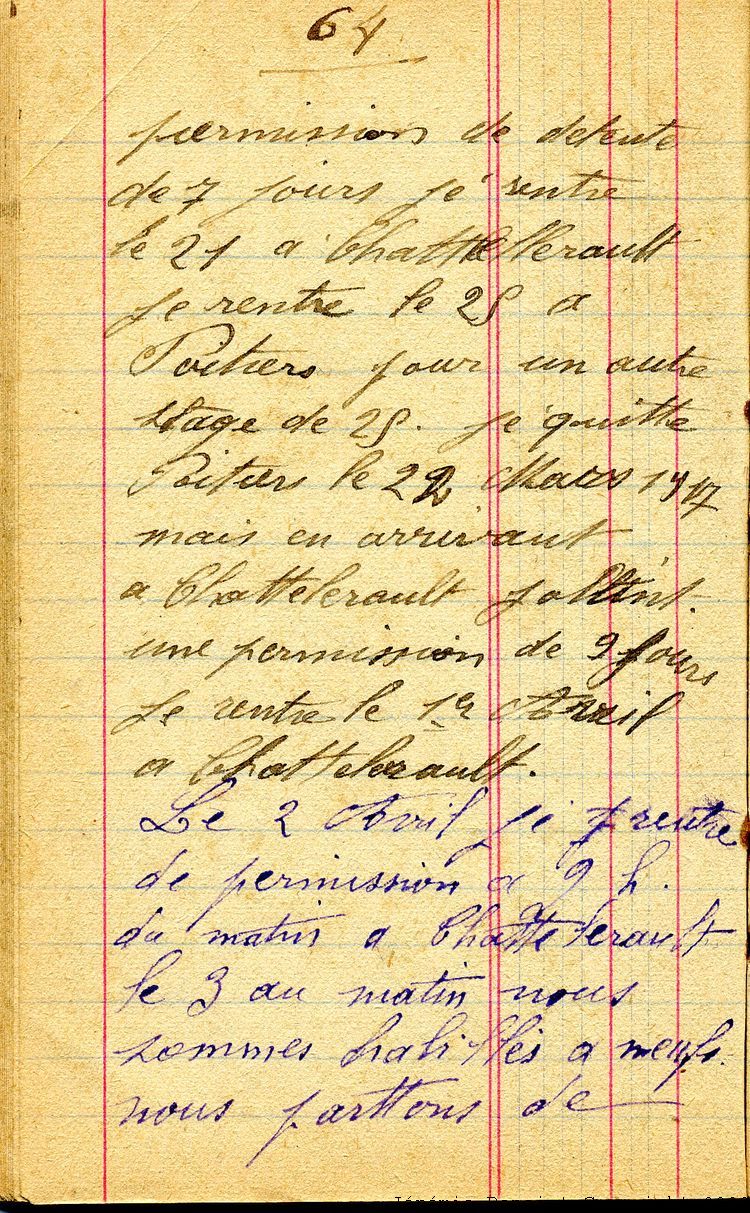 64
permission de detente
de 7 jours je rentre
le 21 a Chattellerault
je rentre le 28 a
Poitiers pour un autre
stage de 28. je quitte
Poitiers le 22 Mars 1917
mais en arrivant
a Chattelerault j'obtint
une permission de 9 jours
je rentre le 1er Avril
a Chattelerault.
Le 2 Avril je rentre
de permission a 9 h.
du matin a Chattelerault
le 3 au matin nous
sommes habilles a neufs.
nous parttons de